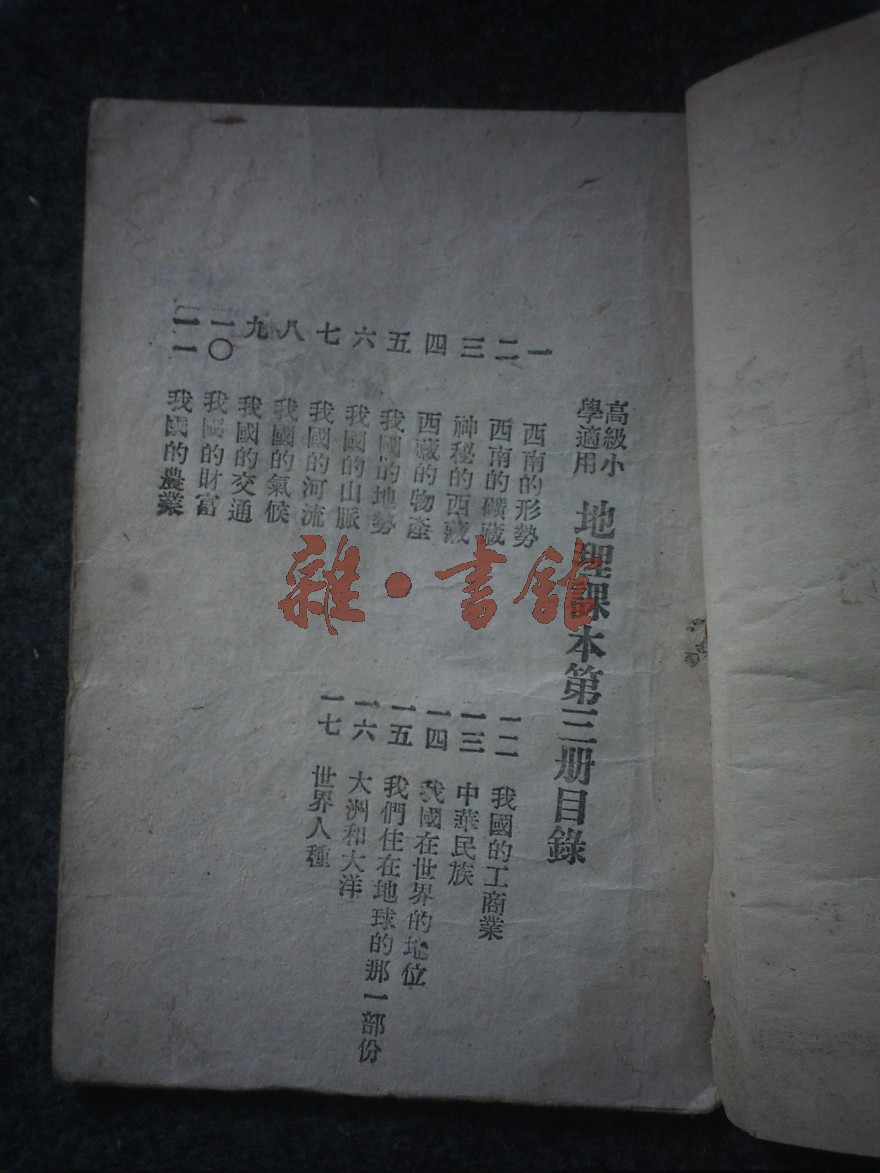 高級小
學適用
地理課本第三册目錄
一 西南的形勢
二 西南的礦藏
三 神秘的西藏
四 西藏的物產
五 我國的地勢
六 我國的山脈
七 我國的河流
八 我國的氣候
九 我國的交通
一〇 我國的財富
一一 我國的農業
一二 我國的工商業
一三 中華民族
一四 我國在世界的地位
一五 我們住在地球的那一部份
一六 大洲和大洋
一七 世界人種
雜·書館